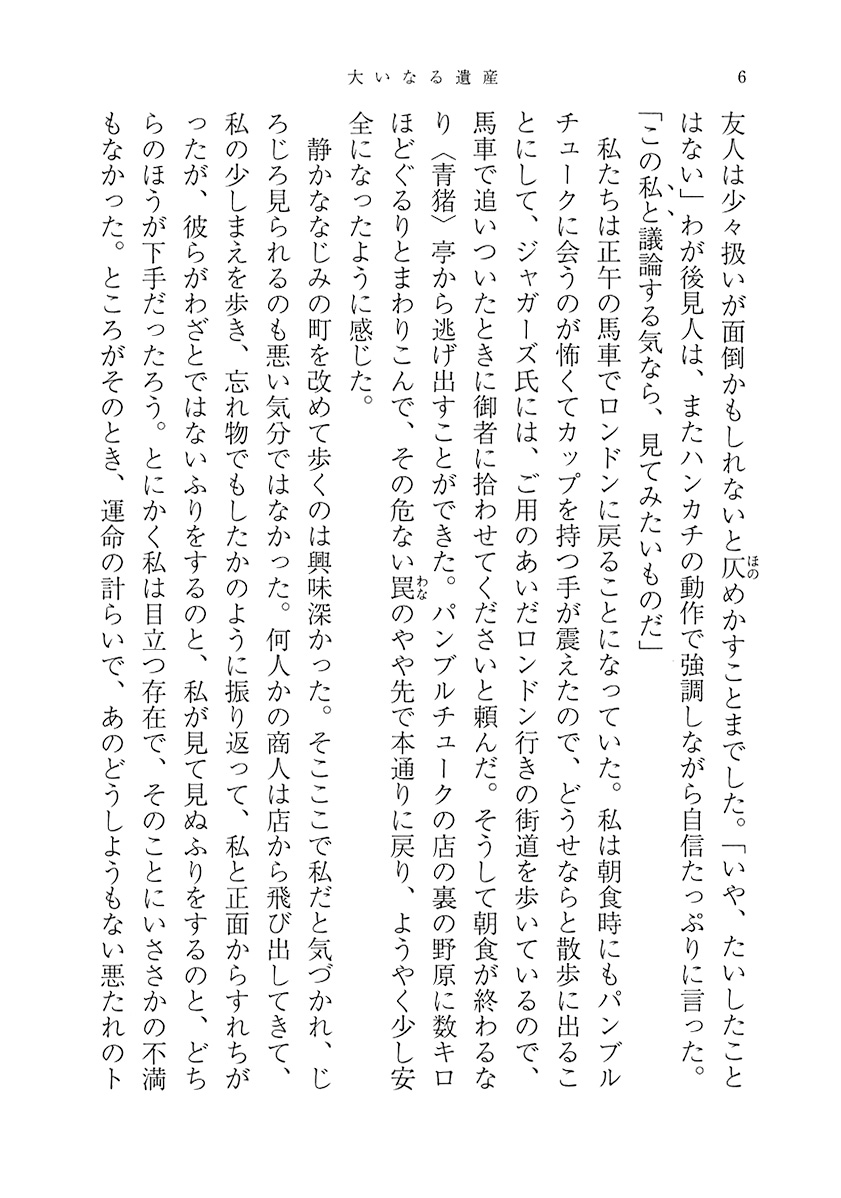 大いなる遺産
6
友人は少々扱いが面倒かもしれないと仄めかすことまでした。「いや、たいしたこと
はない」わが後見人は、またハンカチの動作で強調しながら自信たっぷりに言った。
「この私と議論する気なら、見てみたいものだ」
私たちは正午の馬車でロンドンに戻ることになっていた。私は朝食時にもパンブル
チュークに会うのが怖くてカップを持つ手が震えたので、どうせならと散歩に出るこ
とにして、ジャガーズ氏には、ご用のあいだロンドン行きの街道を歩いているので、
馬車で追いついたときに御者に拾わせてくださいと頼んだ。そうして朝食が終わるな
り〈青猪〉亭から逃げ出すことができた。パンブルチュークの店の裏の野原に数キロ
ほどぐるりとまわりこんで、その危ない罠のやや先で本通りに戻り、ようやく少し安
全になったように感じた。
静かななじみの町を改めて歩くのは興味深かった。そこここで私だと気づかれ、じ
ろじろ見られるのも悪い気分ではなかった。何人かの商人は店から飛び出してきて、
私の少しまえを歩き、忘れ物でもしたかのように振り返って、私と正面からすれちが
ったが、彼らがわざとではないふりをするのと、私が見て見ぬふりをするのと、どち
らのほうが下手だったろう。とにかく私は目立つ存在で、そのことにいささかの不満
もなかった。ところがそのとき、運命の計らいで、あのどうしようもない悪たれのト
ほの
わな